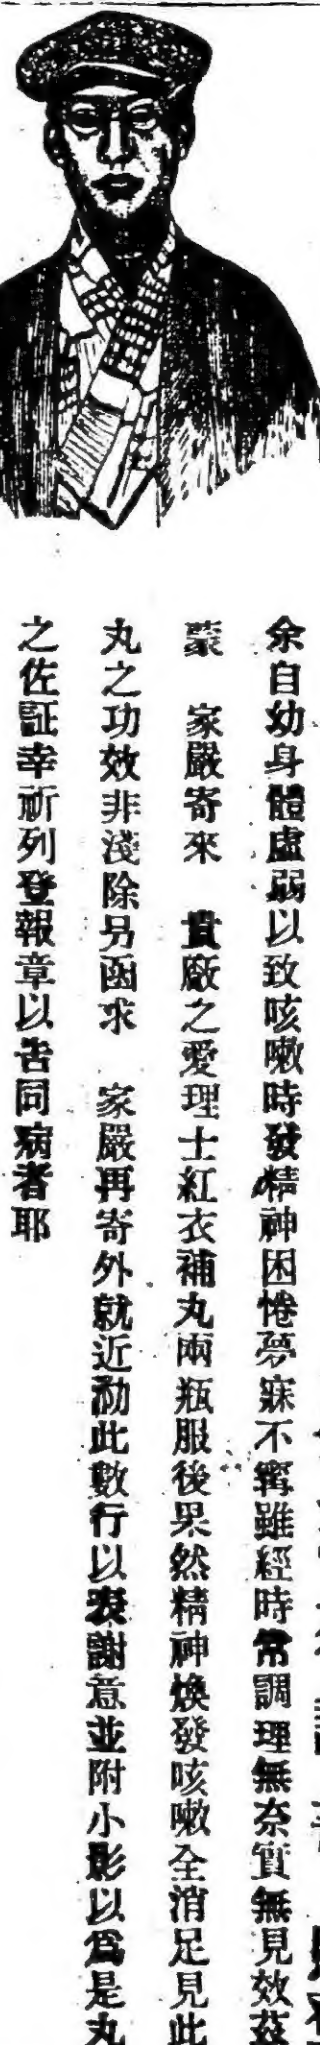 余自幼身體虛弱以致咳嗽時發精神困惓夢寐不寧雖經時常調理無奈實無見效茲
蒙　家嚴寄來　貴廠之愛理士紅衣補丸兩瓶服後果然精神煥發咳嗽全消足見此
丸之功效非淺除另函求　家嚴再寄外就近泐此數行以表謝意並附小影以爲是丸
之佐証幸祈列登報章以告同病者耶